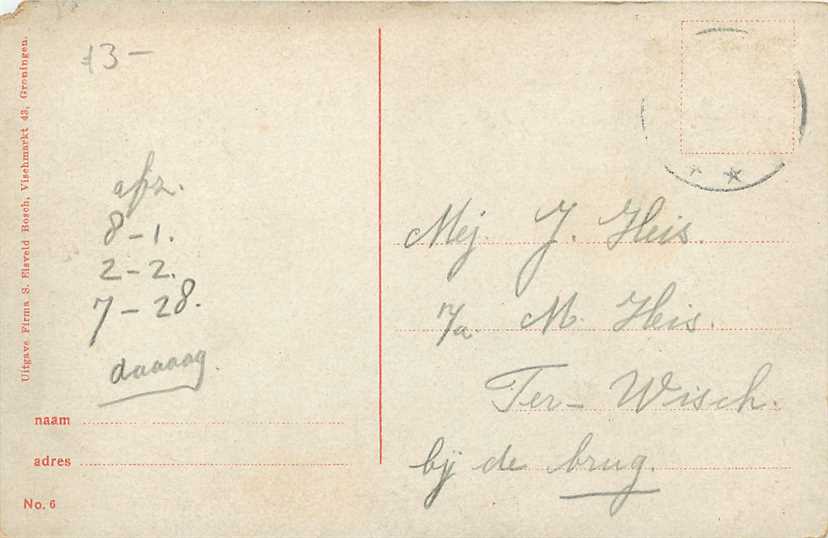 Uitgave Firma S. Elsveld Bosch, Vischmarkt 43, Groningen.
13-
afz.
8-1.
2-2.
7-28.
daaaag.
naam
adres
No. 6
Mej. J. Heis.
M. Heis.
Ter-Wisch.
bij de brug.